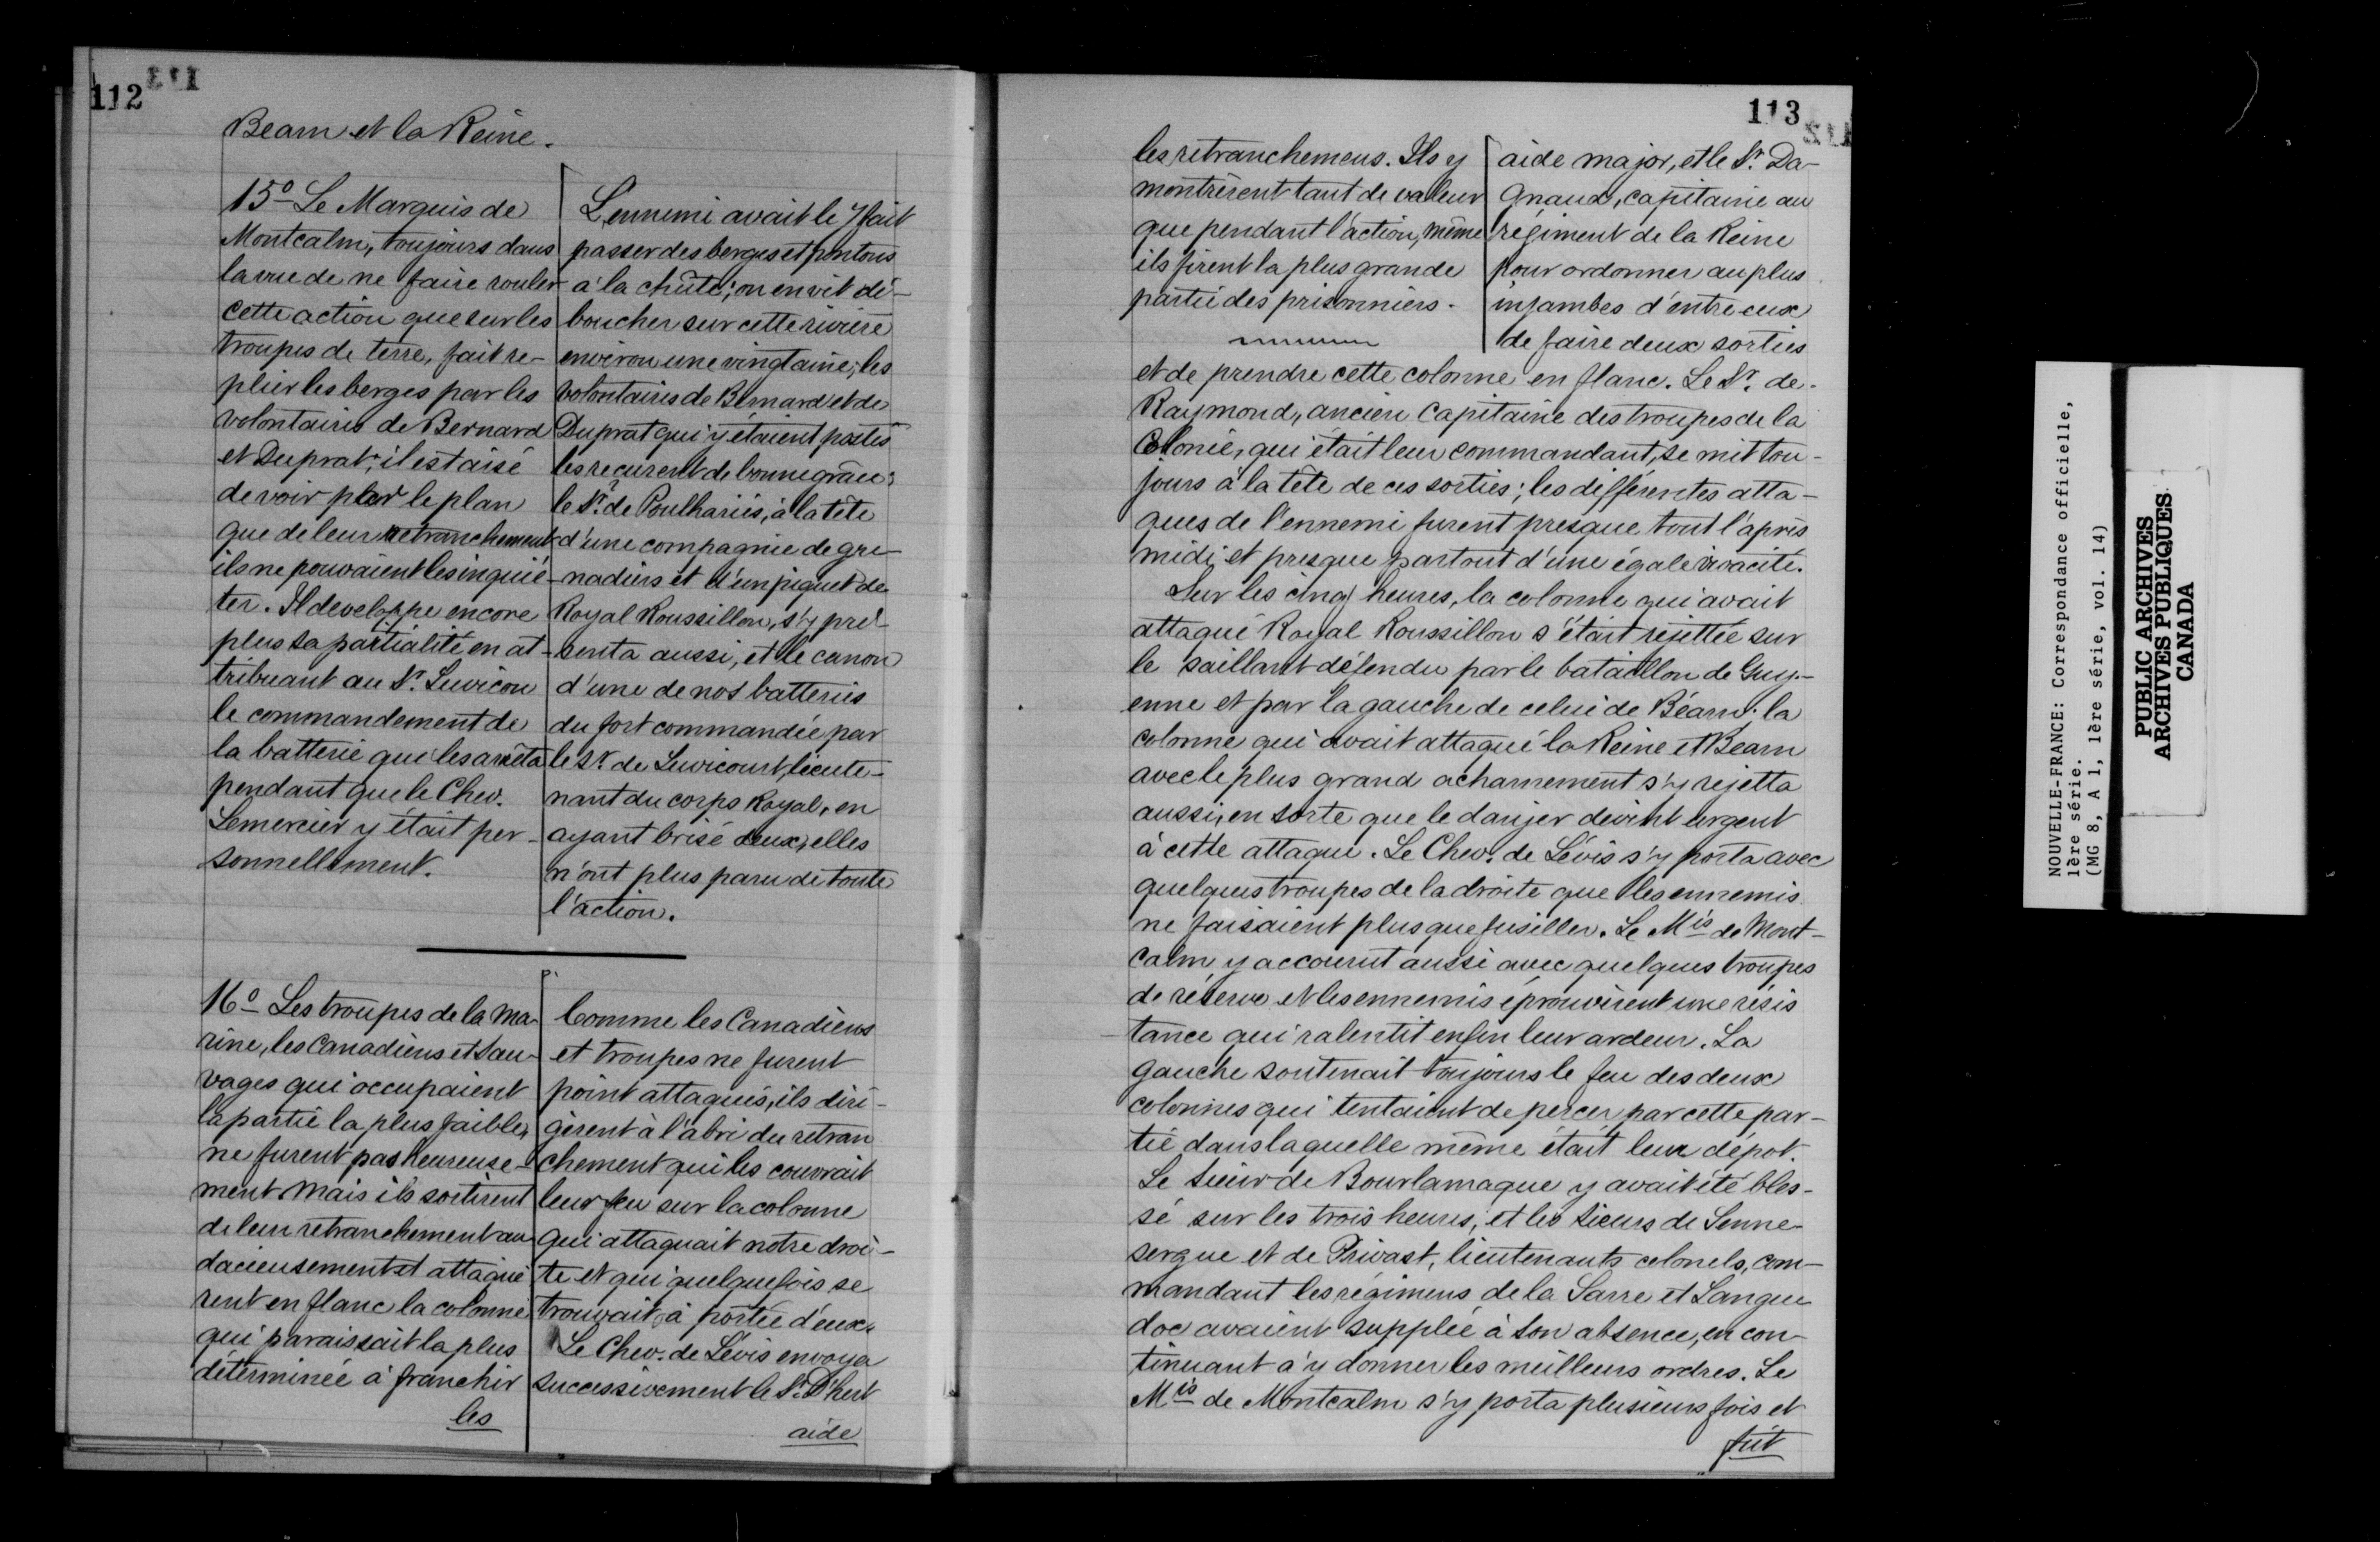 112
Bearn et la Reine.
15o Le Marquis de
Montcalm, toujours dans
la vue de ne faire rouler
cette action que sur les
troupes de terre, fait re-
plier les berges par les
volontaires de Bernard
et Duprat; il est aisé
de voir par le plan
que de leur retranchement
ils ne pouvaient les inquié-
ter. Il developpe encore
plus sa partialité en at-
tribuant au Sr. Luvicou
le commandement de
la batterie qui les arrêta
pendant que le Chev.
Lemercier y était per-
sonnellement.
L'ennemi avait le 7 fait
passer des berges et pontons
à la chûte; on en vit dé-
boucher sur cette rivière
environ une vingtaine; les
volontaires de Bernard et de
Duprat qui y étaient postés
les reçurent de bonne grâce;
le Sr. de Poulhariés, à la tête
d'une compagnie de gre-
nadiers et d'un piquet de
Royal Roussillon, s'y pré-
senta aussi, et le canon
d'une de nos batteries
du fort commandée par
le Sr. de Luvicourt, lieute-
nant du corps Royal, en
ayant brisé deux, elles
n'ont plus paru de toute
l'action.
16o Les troupes de la ma-
rine, les Canadiens et Sau-
vages qui occupaient
la partie la plus faible,
ne furent pas heureuse-
ment mais ils sortirent
de leur retranchement au-
dacieusement et attaquè
rent en flanc la colonne
qui paraissait la plus
déterminée à franchir
les
Comme les Canadiens
et troupes ne furent
point attaqués, ils diri-
gèrent à l'abri du retran
chement qui les couvrait
leur feu sur la colonne
qui attaquait notre droi-
te et qui quelquefois se
trouvait à portée d'eux.
Le Chev. de Lévis envoya
successivement le Sr. D'hert
aide
113
les retranchemens. Ils y
montrèrent tant de valeur
que pendant l'action, même
ils firent la plus grande
partie des prisonniers.
aide major, et le Sr. Da-
Gnaux, capitaine au
régiment de la Reine
pour ordonner au plus
injambes d'entre eux
de faire deux sorties
et de prendre cette colonne en flanc. Le Sr. de
Raymond, ancien capitaine des troupes de la
Colonie, qui était leur commandant, se mit tou-
jours à la tête de ces sorties; les différentes atta-
ques de l'ennemi furent presque tout l'après
midi et presque partout d'une égale vivacité.
Sur les cinq heures, la colonne qui avait
attaqué Royal Roussillon s'était rejettée sur
le saillant défendu par le bataillon de Guy-
enne et par la gauche de celui de Béarn; la
colonne qui avait attaqué la Reine et Bearn
avec le plus grand acharnement s'y rejetta
aussi, en sorte que le danjer devint urgent
à cette attaque. Le Chev. de Lévis s'y porta avec
quelques troupes de la droite que les ennemis
ne faisaient plus que fusiller. Le Mis de Mont-
calm y accourut aussi avec quelques troupes
de réserve et les ennemis éprouvèrent une résis
tance qui ralentit enfin leur ardeur. La
gauche soutenait toujours le feu des deux
colonnes qui tentaient de percer par cette par-
tie dans laquelle même était leur dépot.
Le Sieur de Bourlamaque y avait été bles-
sé sur les trois heures; et les Sieurs de Senne-
sergue et de Privast, lieutenants colonels, com-
mandant les régimens de la Sarre et Langue
doc avaient supplée à son absence, en con-
tinuant à y donner les meilleurs ordres. Le
Mis de Montcalm s'y porta plusieurs fois et
fut
NOUVELLE-FRANCE: Correspondance officielle,
1ère série.
(MG 8, A 1, 1ère série, vol. 14)
PUBLIC ARCHIVES
ARCHIVES PUBLIQUES
CANADA